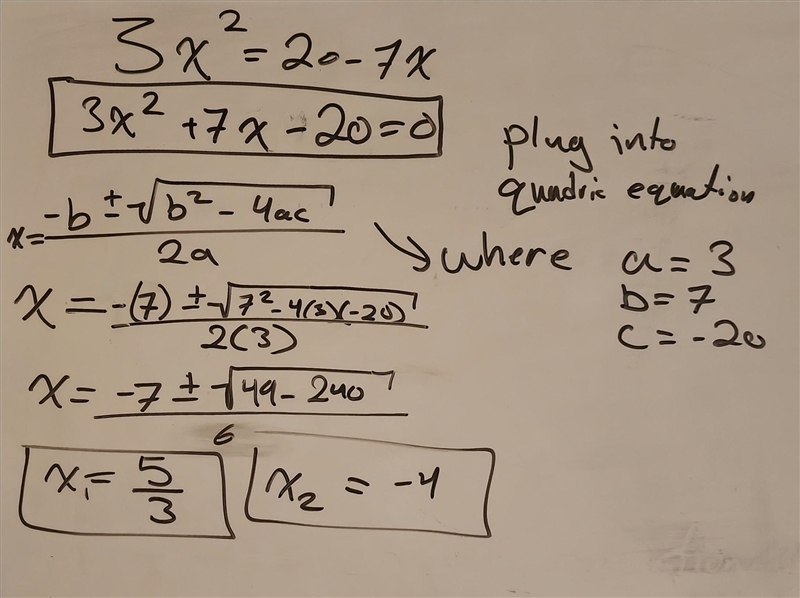 3x² = 20 - 7x
3x² + 7x - 20 = 0
plug into
quadric equation
x = (-b ± √(b² - 4ac)) / 2a
where a = 3
b = 7
c = -20
x = (-(7) ± √(7² - 4(3)(-20))) / 2(3)
x = (-7 ± √(49 - 240)) / 6
x₁ = 5/3
x₂ = -4